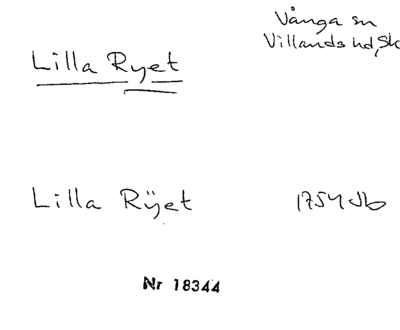 Vånga sn
Villands hd, Sk
Lilla Ryet
Lilla Rÿet 1754 Jb
Nr 18344